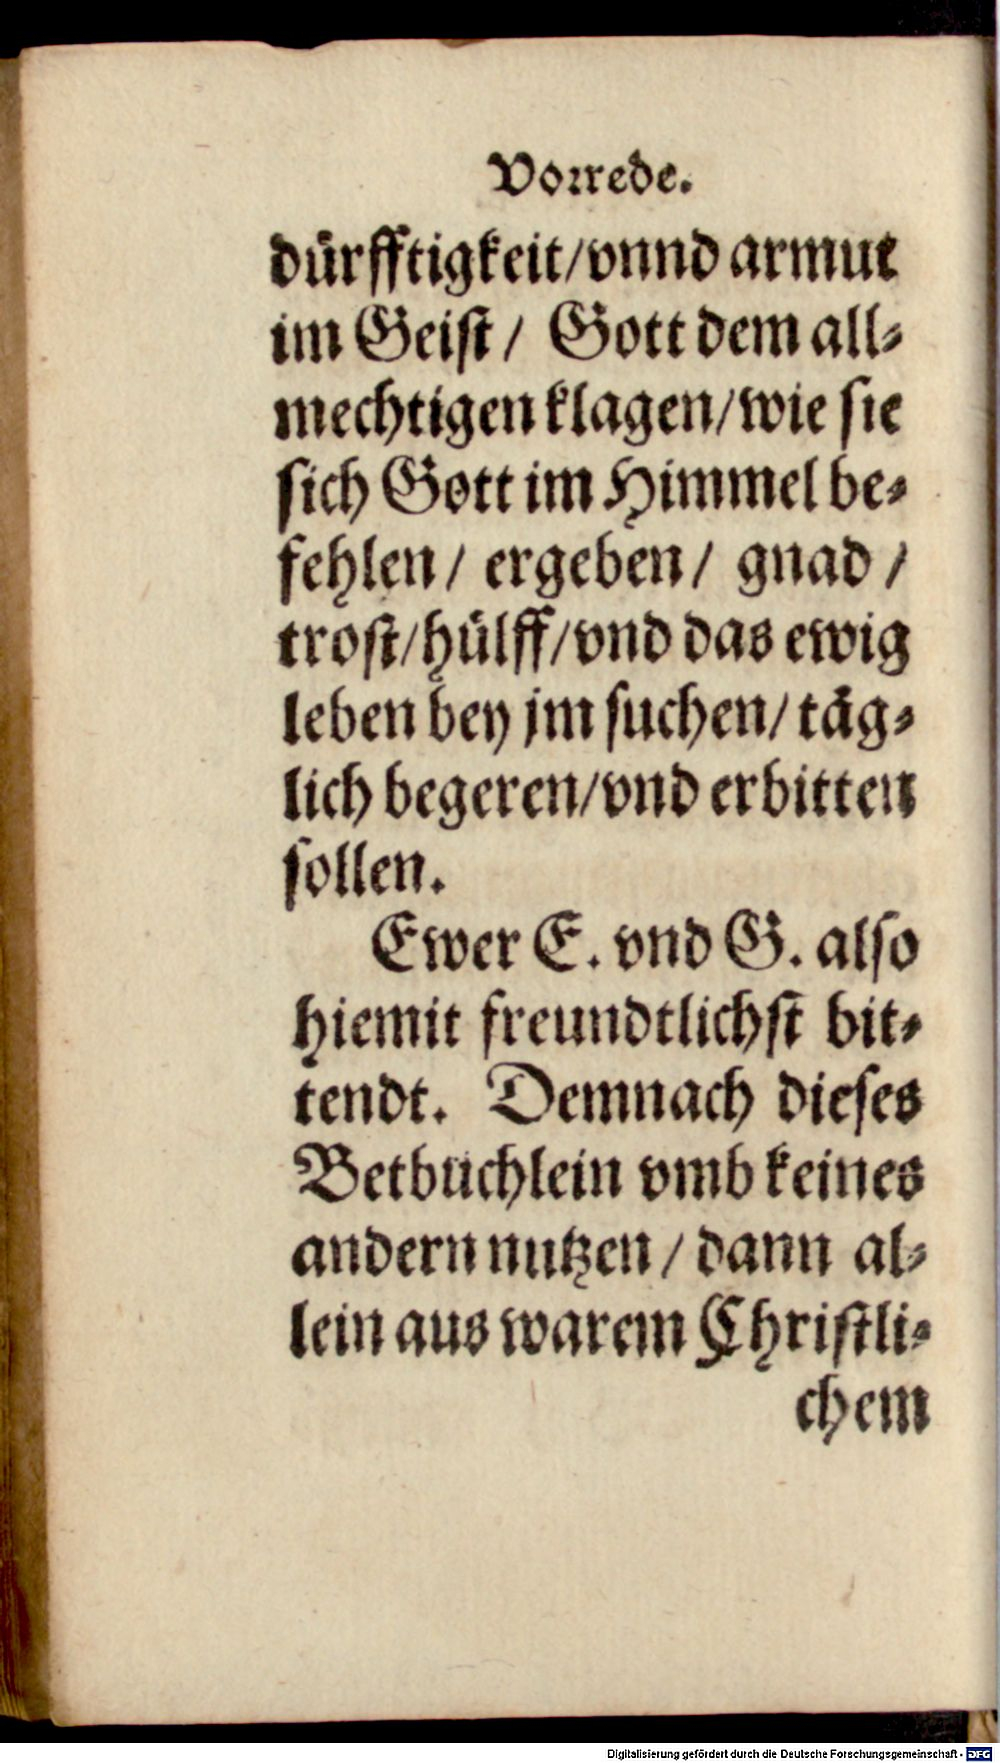 Vorrede.
dürfftigkeit/vnnd armut
im Geist/ Gott dem all-
mechtigen klagen/wie sie
sich Gott im Himmel be-
fehlen/ ergeben/ gnad/
trost/hülff/vnd das ewig
leben bey jm suchen/ täg-
lich begeren/vnd erbitten
sollen.
Ewer E. vnd G. also
hiemit freundtlichst bit-
tendt. Demnach dieses
Betbüchlein vmb keines
andern nutzen/ dann al-
lein aus warem Christli-
chem
Digitalisierung gefördert durch die Deutsche Forschungsgemeinschaft - DFG